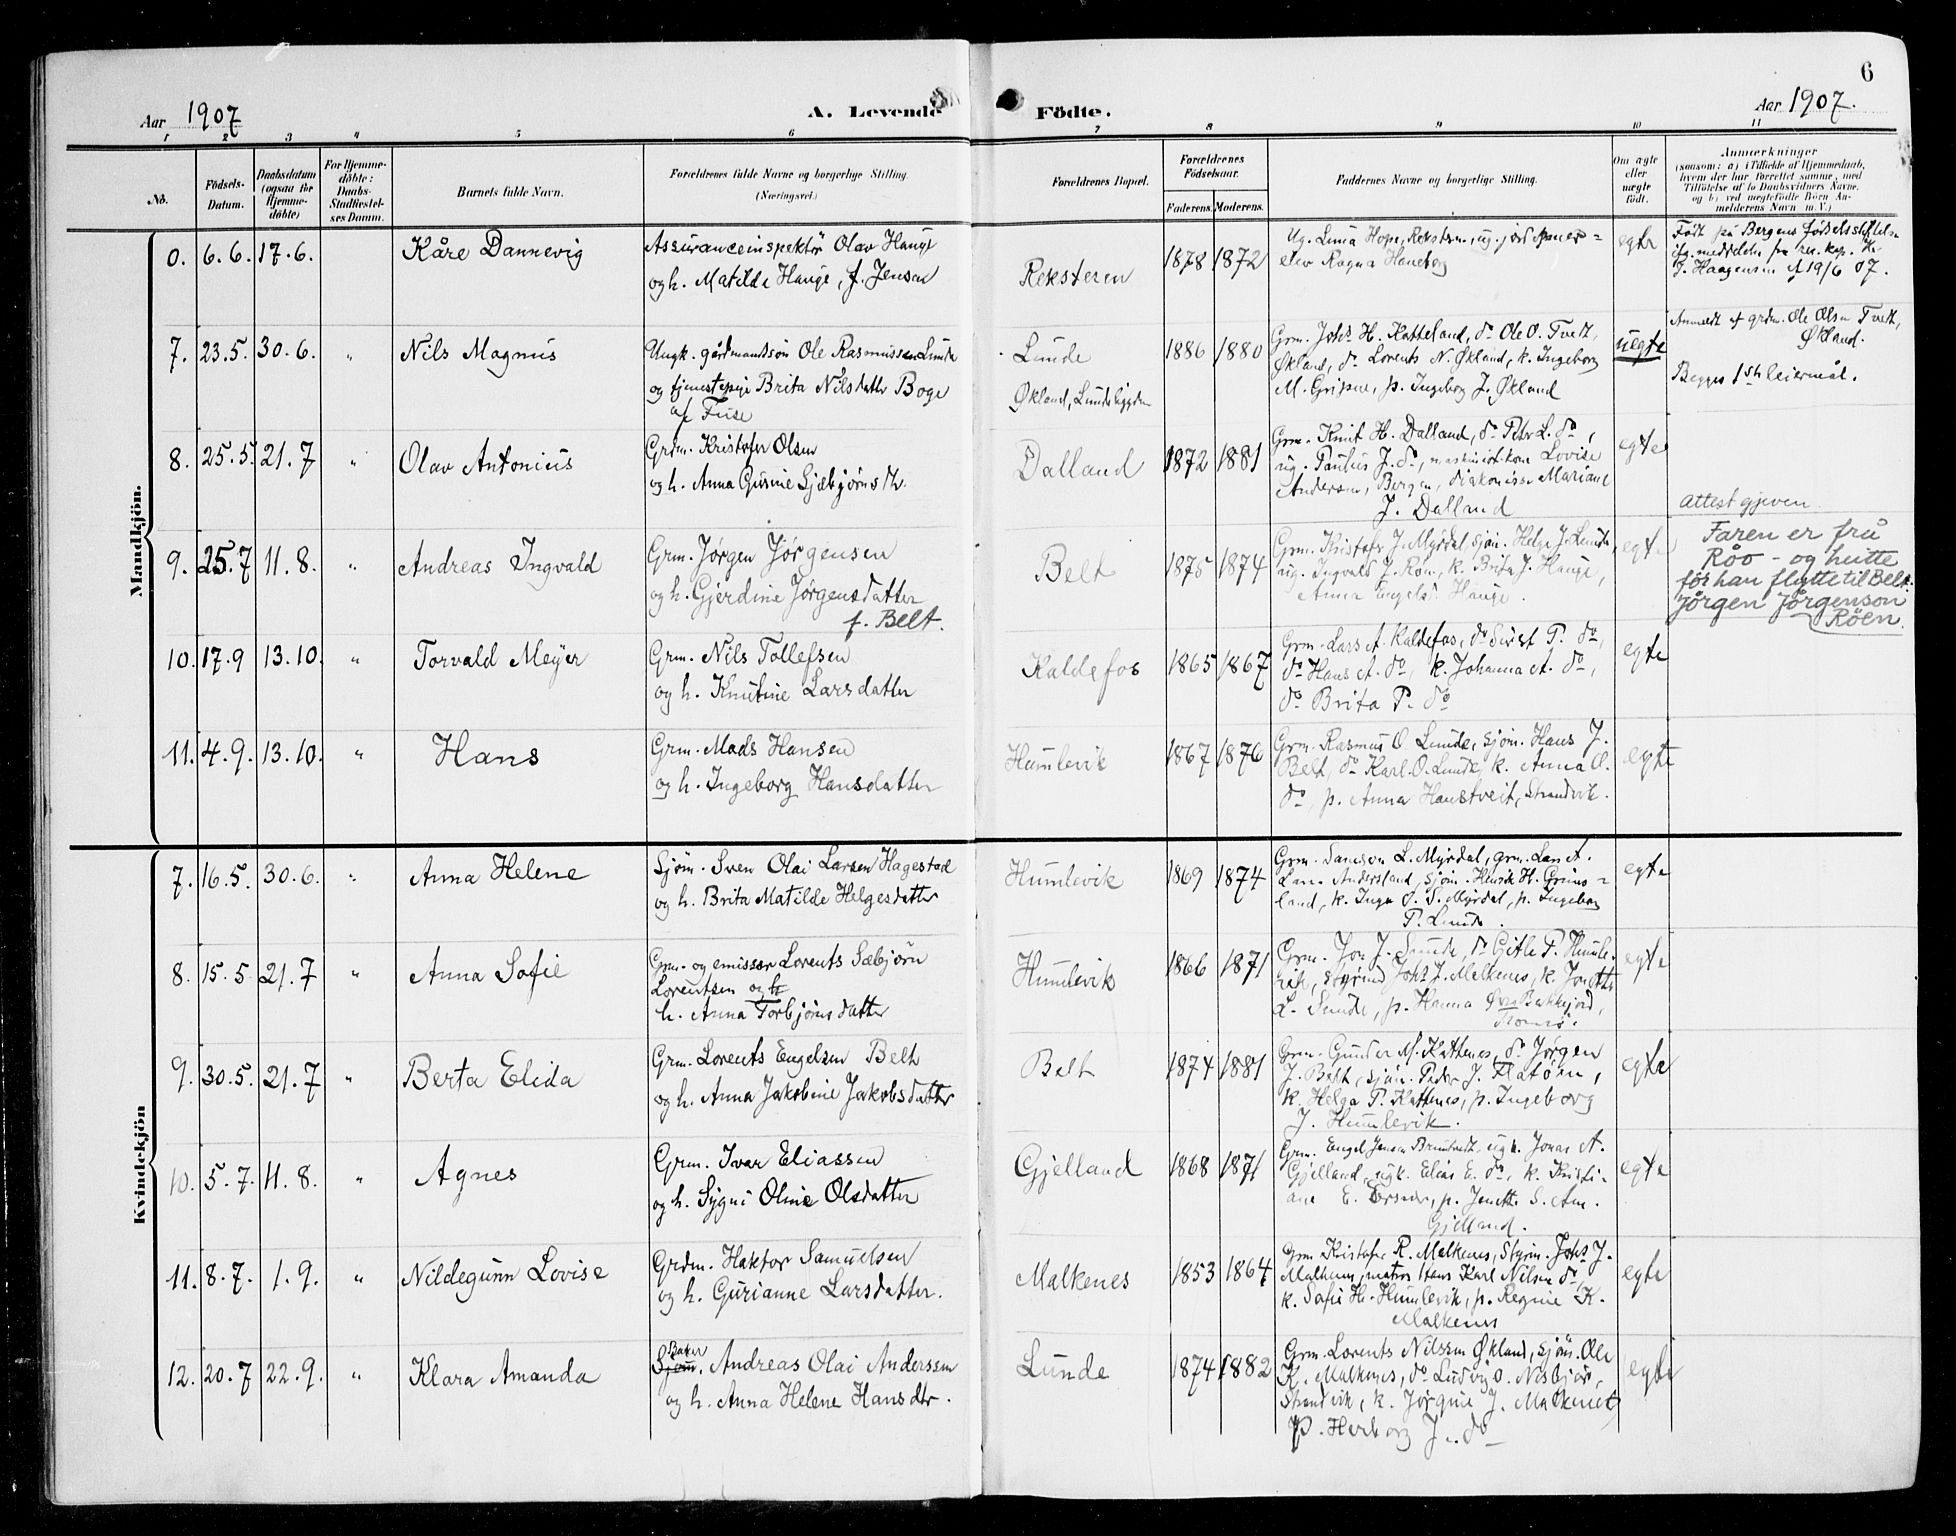 6
Aar 1907 A. Levende Födte. Aar 1907.
1 2 3 4 5 6 7 8 9 10 11
No. Födsels-Datum. Daabsdatum (ogsaa for Hjemme-döbte) For Hjemme-döbte: Daabs-Stadfæstel-ses Datum. Barnets fulde Navn. Forældrenes fulde Navne og borgerlige Stilling. (Næringsvei.) Forældrenes Bopæl. Forældrenes Födselsaar. Faderens. Moderens. Faddernes Navne og borgerlige Stilling. Om ægte eller uægte födt. Anmærkninger
(saasom: a) i Tilfælde af Hjemmedaab, hvem der har forrettet samme, med Tilföielse af to Daabsvidners Navne, og b) ved uægtefödte Börn An-melderens Navn m. V.)
Mandkjön.
0. 6.6. 17.6. Kåre Dannevig Assuranceinspektör Olav Hauge
og h. Matilde Hauge, f. Jensen
Reksteren 1878 1872 egte
Født på Bergens fødselsstiftelse
J. Haagensen af 19/6 07.
7. 23.5. 30.6. " Nils Magnus Ungk. gårdmandssøn Ole Rasmussen Lunde
og tjenestepige Brita Nilsdatter Boge
af Fuse
Lunde
Økland, Lundsbygden
1886 1880
Grm. Johs H. Katteland, do Ole O. Tvedt,
Økland, do Lorents N. Økland, k. Ingeborg
M. Gripne, p. Ingeborg J. Økland
uegte
Anmeldt af grdm. Ole Olsen Tvedt,
Økland.
Begges 1ste leiermål.
8. 25.5. 21.7 " Olav Antonius Grdm. Kristofer Olsen
og h. Anna Gurine Sjæbjørnsdtr.
Dalland 1872 1881
Grm. Knut H. Dalland, do Peter L. do,
ug. Paulus J. do, maskinistkone Lovise
Andersen, Bergen, diakonisse Mariane
J. Dalland
egte
attest gjeven
9. 25.7 11.8. " Andreas Ingvald Grm. Jørgen Jørgensen
og h. Gjerdine Jørgensdatter
f. Belt.
Belt 1875 1874
Grm. Kristofer J. Myrdal, sjøm. Helge J. Lunde,
ug. Ingvald J. Røen, k. Brita J. Hauge,
Anna Engelsd. Hauge.
egte
Faren er frå
Röo - og heitte
før han flytte til Belt:
Jörgen Jörgenson
Röen.
10. 17.9 13.10. " Torvald Meyer Grm. Nils Tollefsen
og h. Knutine Larsdatter
Kaldefos 1865 1867
Grm. Lars A. Kaldefos, do Sjurt P. do,
do Hans A. do, k. Johanna A. do,
do Brita P. do
egte
11. 4.9. 13.10. " Hans Grm. Mads Hansen
og h. Ingeborg Hansdatter
Humlevik 1867 1876
Grm. Rasmus O. Lunde, sjøm. Hans J.
Belt, do Karl O. Lunde, k. Anna O.
do, p. Anna Haustveit, Strandvik.
egte
Kvindekjön
7. 16.5. 30.6. " Anna Helene Sjøm. Sven Olai Larsen Hagestad
og h. Brita Matilde Helgesdatter
Humlevik 1869 1874
Grm. Samson L. Myrdal, grm. Lars A.
Andersland, sjøm. Henrik H. Grims-
land, k. Inga S. Myrdal, p. Ingeborg
P. Lunde.
egte
8. 15.5. 21.7 " Anna Sofie Grm. og emissær Lorents Sæbjørn
Lorentsen og h
h. Anna Torbjørnsdatter
Humlevik 1866 1871
Grm. Jon J. Lunde, do Gitle P. Humle-
vik, styrmd Johs J. Malkenes, k. Jonette
L. Lunde, p. Hanna Øvre Bakkejord,
Tromsø.
egte
9. 30.5. 21.7 " Berta Elida Grm. Lorents Engelsen Belt
og h. Anna Jakobine Jakobsdatter
Belt 1874 1881
Grm. Gunder M. Kattenes, do Jørgen
J. Belt, sjøm. Peder J. Flatøen,
k. Helga P. Kattenes, p. Ingeborg
J. Humlevik.
egte
10. 5.7. 11.8. " Agnes Grm. Ivar Eliassen
og h. Sygni Oline Olsdatter
Gjelland 1868 1871
Grm. Engel Jensen, ugk. Jonas A.
Gjelland, ugk. Elias E. do, k. Kristi-
ane E., p. Jenette S. Am.
Gjelland.
egte
11. 8.7. 1.9. " Nildegunn Lovise Grdm. Haktor Samuelsen
og h. Gurianne Larsdatter.
Malkenes 1853 1864
Grm. Kristofer R. Malkenes, Styrm. Johs J.
Malkenes, matros Hans Karl Nilsen do,
k. Sofie H. Humlevik, p. Regine K.
Malkenes
egte
12. 20.7 22.9. " Klara Amanda Baker
Sjøm. Andreas Olai Anderssen
og h. Anna Helene Hansdtr.
Lunde 1874 1882
Grm. Lorents Nilssen Økland, sjøm. Ole
K. Malkenes, do Ludvig O. Nesbjør,
Strandvik, k. Jørgine J. Malkenes,
p. Herborg J. do
egte